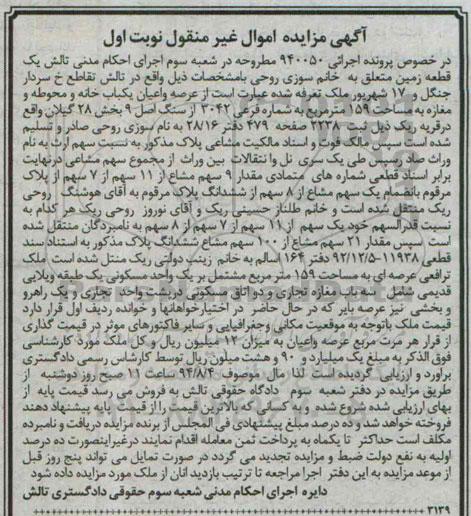 آگهی مزایده اموال غیر منقول نوبت اول
در خصوص پرونده اجرائی ۹۴۰۰۵۰ مطروحه در شعبه سوم اجرای احکام مدنی تالش یک
قطعه زمین متعلق به خانم سوزی روحی بامشخصات ذیل واقع در تالش تقاطع خ سردار
جنگل و ۱۷ شهریور ملک تعرفه شده عبارت است از عرصه واعیان یکباب خانه و محوطه و
مغازه به مساحت ۱۵۹ مترمربع به شماره فرعی ۳۰۴۲ از سنگ اصل ۹ بخش ۲۸ گیلان واقع
درقریه ریک ذیل ثبت صفحه ۴۷۹ دفتر ۲۸/۱۶ به نام سوزی روحی صادر و تسلیم
شده است سپس مالک فوت و اسناد مالکیت مشاعی پلاک مذکور به نسبت سهم ارث به نام
وراث صادر سپس طی یک سری نقل وانتقالات بین وراث از مجموع سهم مشاعی درنهایت
برابر اسناد قطعی شماره های متمادی مقدار ۹ سهم مشاع از ۱۱ سهم از ۷ سهم از پلاک
مرقوم بانضمام یک سهم مشاع از ۸ سهم از ششدانگ پلاک مرقوم به آقای هوشنگ روحی
ریک منتقل شده است و خانم طلناز حسینی ریک و آقای نوروز روحی ریک هر کدام به
نسبت قدرالسهم خود یک سهم از ۱۱ سهم از ۷ سهم از ۸ سهم به نامبردگان منتقل شده
است سپس مقدار ۲۱ سهم مشاع از ۱۰۰ سهم مشاع ششدانگ پلاک مذکور به استناد سند
قطعی ۱۱۹۳۸-۹۲/۱۲/۵ دفتر ۱۶۴ اسالم به خانم زینب دولتی ریک منتل شده است. ملک
ترافعی عرصه ای به مساحت ۱۵۹ متر مربع مشتمل بر یک واحد مسکونی یک طبقه ویلایی
قدیمی شامل سه باب مغازه تجاری و دو اتاق مسکونی درپشت واحد تجاری و یک راهرو
و بخشی نیز عرصه بایر که در حال حاضر در اختیارخواهانها و خوانده ردیف اول قرار دارد
قیمت ملک باتوجه به موقعیت مکانی وجغرافیایی و سایر فاکتورهای موثر در قیمت گذاری
از قرار هر مترت مربع عرصه واعیان به میزان ۱۲ میلیون ریال و کل ملک مورد کارشناسی
فوق الذکر به مبلغ یک میلیارد و ۹۰ و هشت میلون ریال توسط کارشناس رسمی دادگستری
براورد و ارزیابی گردیده است لذا مال موصوف ۹۴/۸/۴ ساعت ۱۱ صبح روز دوشنبه از
طریق مزایده در دفتر شعبه سوم دادگاه حقوقی تالش به فروش می رسد قیمت پایه از
بهای ارزیابی شده شروع شده و به کسی که بالاترین قیمت را از قیمت پایه پیشنهاد دهند
فروخته خواهد شد و ده درصد مبلغ پیشنهادی فی المجلس از برنده مزایده دریافت و نامبرده
مکلف است حداکثر تا یکماه به پرداخت ثمن معامله اقدام نمایند درغیراینصورت ده درصد
اولیه به نفع دولت ضبط و مزایده تجدید می گردد در صورت تمایل می تواند پنج روز قبل
از موعد مزایده به این دفتر اجرا مراجعه تا ترتیب بازدید انان از ملک مورد مزایده داده شود
دایره اجرای احکام مدنی شعبه سوم حقوقی دادگستری تالش
۳۱۳۹